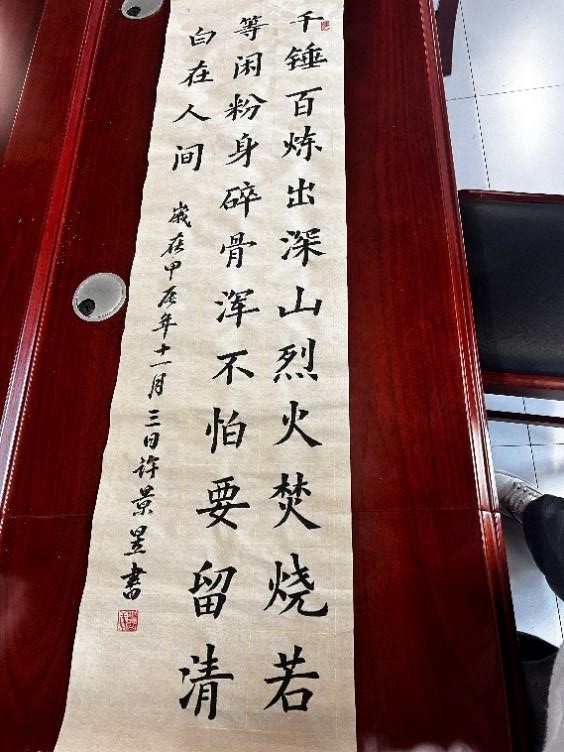 千锤百炼出深山烈火焚烧若
等闲粉身碎骨浑不怕要留清
白在人间
岁在甲辰年十一月三日许景昱书